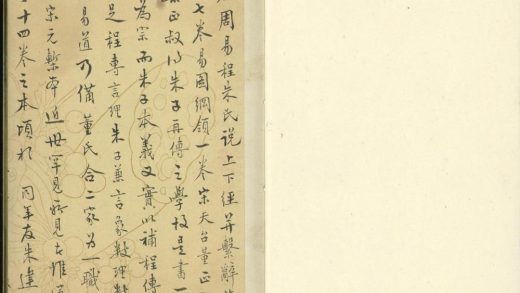 周易程朱氏説上下經并繫辭
七卷易圖綱領一卷宋天台董正
正叔乃朱子再傳之學故是書一
為宗而朱子本義又實以補程傳
是程專言理朱子兼言象數理數
易道乃備董氏合二家為一
宋元槧本近世罕見所見者惟
十四卷之本頃於同年友朱